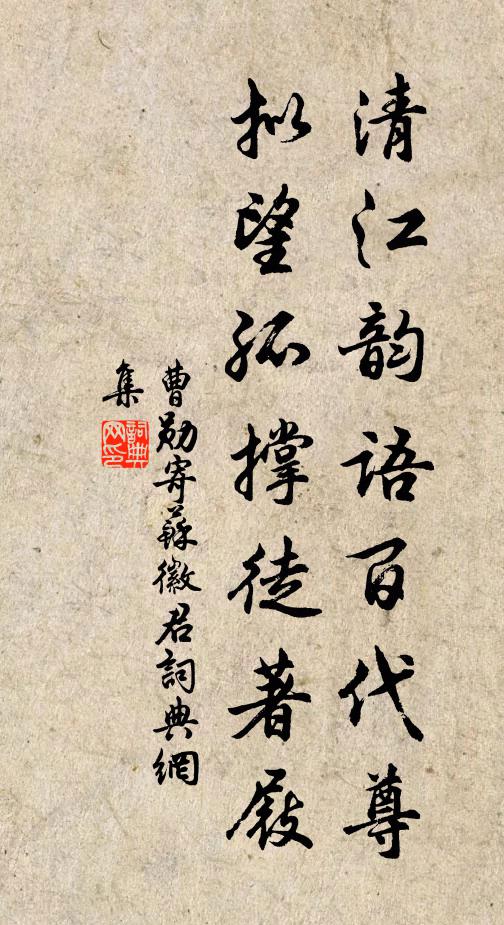 清江韵语百代尊
拟望孤撑徒著屐
曹勋寄苏徽君詞典網
集
詞典网印